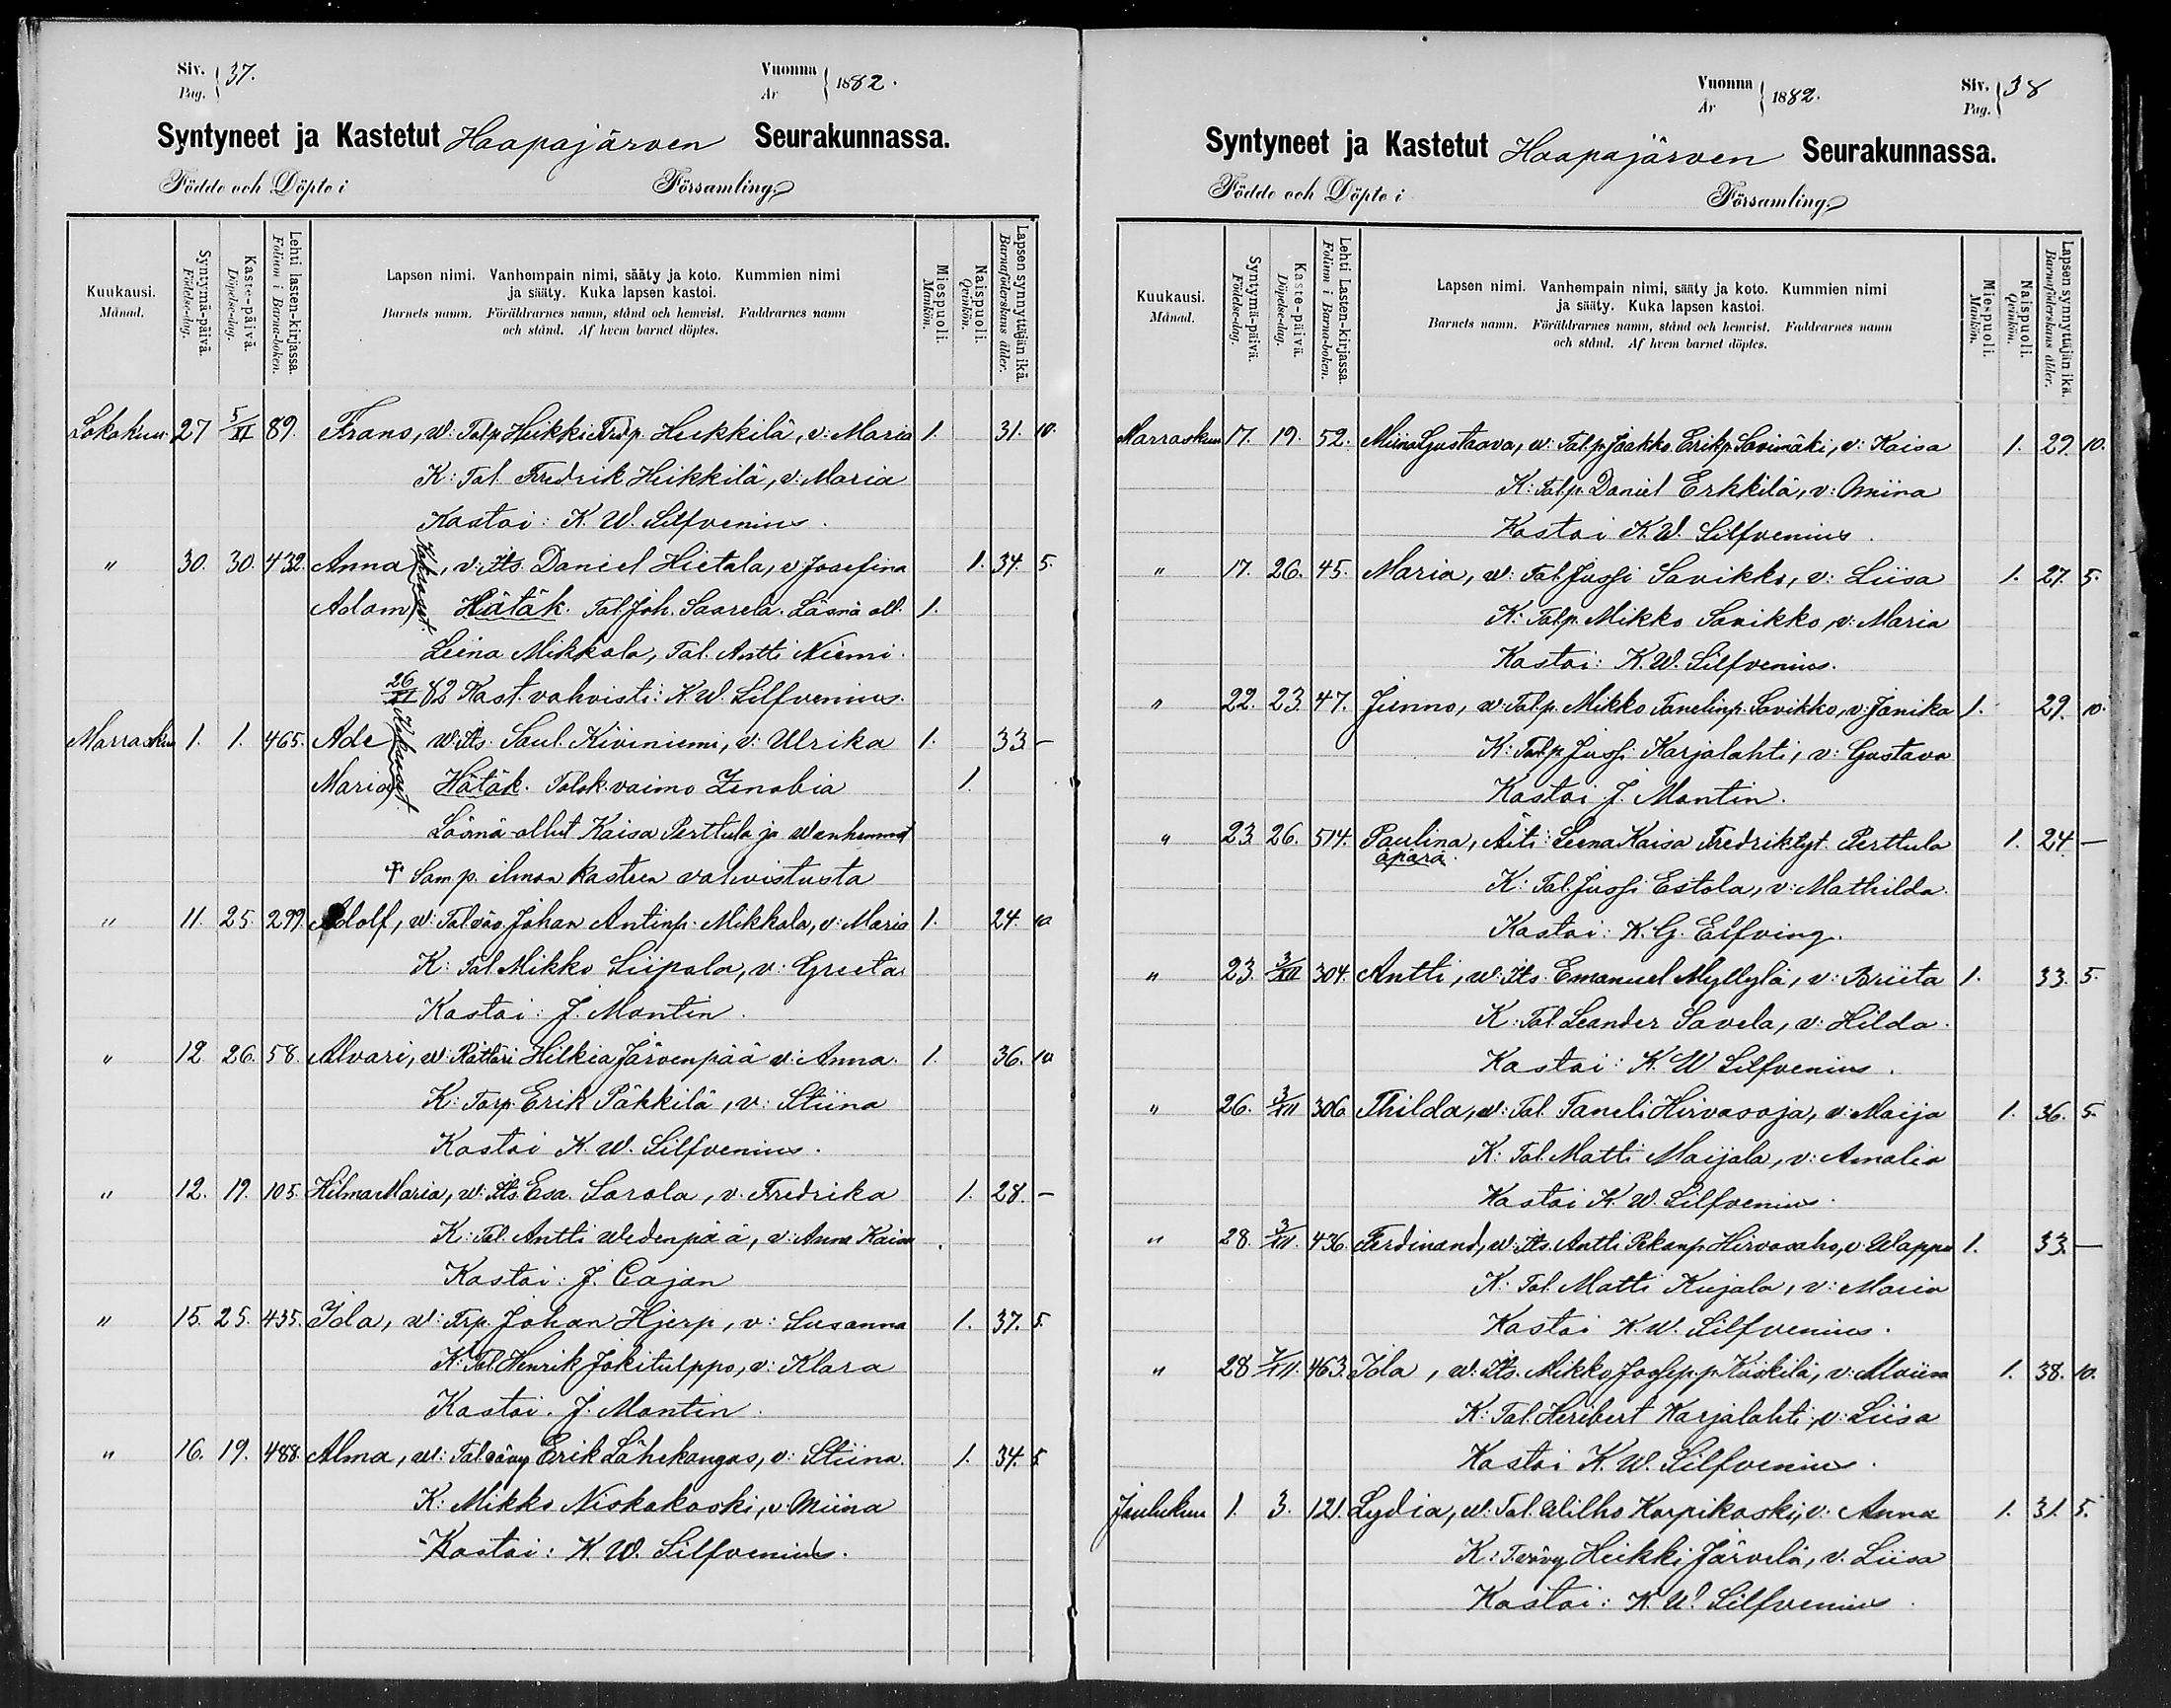 Siv. Pag. 37.
Vuonna År 1882.
Syntyneet ja Kastetut Haapajärven Seurakunnassa.
Födde och Döpte i Församling.
Kuukausi. Månad.
Syntymä-päivä. Födelse-dag.
Kaste-päivä. Döpelse-dag.
Lehti lasten-kirjassa. Folium i Barna-boken.
Lapsen nimi. Vanhempain nimi, sääty ja koto. Kummien nimi
ja sääty. Kuka lapsen kastoi.
Barnets namn. Föräldrarnes namn, stånd och hemvist. Faddrarnes namn
och stånd. Af hvem barnet döptes.
Miespuoli. Mankön.
Naispuoli. Qvinkön.
Lapsen synnyttäjän ikä. Barnaföderskans ålder.
Lokakuu 27 5/XI 89. Frans, w: Talp. Heikki Fredp. Heikkilä, v: Maria 1. 31. 10.
K: Tal. Fredrik Heikkilä, v: Maria
Kastoi: K. W. Silfvenius.
" 30. 30. 432. Anna, v: Its. Daniel Hietala, v: Josefina 1. 34. 5.
Adam Hätäk. Tal. Joh. Saarela. Läsnä oll. 1.
Leena Mikkola, Tal. Antti Niemi.
26/XI 82 Kast. vahvisti: K W. Silfvenius.
Marraskuu 1. 1. 465. Ade w: Its. Saul Kiviniemi, v: Ulrika 1. 33 –
Maria Hätäk. Talok. vaimo Zenobia 1.
Läsnä ollut Kaisa Perttula ja wanhemmat
† Sam. p. ilman kasteen vahvistusta
" 11. 25. 299. Adolf, w: Talväv. Johan Antinp. Mikkola, v: Maria 1. 24. 10
K: Tal. Mikko Liipola, v: Greeta
Kastoi: J. Montin.
" 12 26. 58. Alvari, w: Rättäri Hilkia Järvenpää v: Anna. 1. 36. 10
K: Torp. Erik Päkkilä, v: Stiina
Kastoi K. W. Silfvenius.
" 12. 19. 105. Hilma Maria, w: Its. Esa Sarola, v. Fredrika 1. 28. –
K: Tal. Antti Wedenpää, v: Anna Kaisa
Kastoi: J. Cajan
" 15. 25. 435. Ida, w: Trp. Johan Hjerp, v: Susanna 1. 37. 5
K: Tal. Henrik Jokitulppo, v: Klara
Kastoi. J. Montin.
" 16. 19. 488. Alma, w: Talvävy Erik Lähekangas, v: Stiina. 1. 34. 5
K: Mikko Niskakoski, v: Miina
Kastoi: K. W. Silfvenius.
Vuonna År 1882.
Siv. Pag. 38
Syntyneet ja Kastetut Haapajärven Seurakunnassa.
Födde och Döpte i Församling.
Kuukausi. Månad.
Syntymä-päivä. Födelse-dag.
Kaste-päivä. Döpelse-dag.
Lehti Lasten-kirjassa. Folium i Barna-boken.
Lapsen nimi. Vanhempain nimi, sääty ja koto. Kummien nimi
ja sääty. Kuka lapsen kastoi.
Barnets namn. Föräldrarnes namn, stånd och hemvist. Faddrarnes namn
och stånd. Af hvem barnet döptes.
Miespuoli. Mankön.
Naispuoli. Qvinkön.
Lapsen synnyttäjän ikä. Barnaföderskans ålder.
Marraskuu 17. 19. 52. Miina Gustaava, w: Tal. p. Jaakko Erikp. Savimäki, v: Kaisa 1. 29. 10.
K: Talp. Daniel Erkkilä, v: Miina
Kastoi K. W. Silfvenius.
" 17. 26. 45. Maria, w: Tal. Jussi Savikko, v: Liisa 1. 27. 5.
K: Talp. Mikko Savikko, v: Maria
Kastoi: K. W. Silfvenius.
" 22. 23 47. Jienno, w: Talp. Mikko Tanelinp. Savikko, v: Janika 1. 29. 10
K: Talp. Jussi Karjalahti, v: Gustava
Kastoi J. Montin.
" 23. 26. 514. Paulina, Äiti: Leena Kaisa Fredriktyt. Perttula 1. 24. –
äpärä.
K: Tal. Jussi Estola, v: Mathilda.
Kastoi: K. G. Elfving.
" 23. 3/XII 304. Antti, w: Its. Emanuel Myllylä, v: Briita 1. 33. 5.
K: Tal. Leander Savela, v: Hilda.
Kastoi: K. W Silfvenius.
" 26. 3/XII 306 Thilda, w: Tal. Taneli Hirvasoja, v: Maija 1. 36. 5.
K: Tal. Matti Maijala, v: Amalia
Kastoi K. W. Silfvenius.
" 28. 3/XII. 436. Ferdinand, w: Its. Antti Pekanp. Hirvasaho, v: Wappu 1. 33. –
K: Tal. Matti Kujala, v: Maria
Kastoi K. W. Silfvenius.
" 28 /XII. 463. Ida, w: Its. Mikko Josep. p. Kiiskilä, v: Maiina 1. 38. 10.
K: Tal. Heribert Karjalahti, v: Liisa
Kastoi K. W. Silfvenius.
Joulukuu 1. 3. 121. Lydia, w: Tal. Wilho Karpikoski, v: Anna 1. 31. 5.
K: T. vävy Heikki Järvelä, v. Liisa
Kastoi: K. W. Silfvenius.